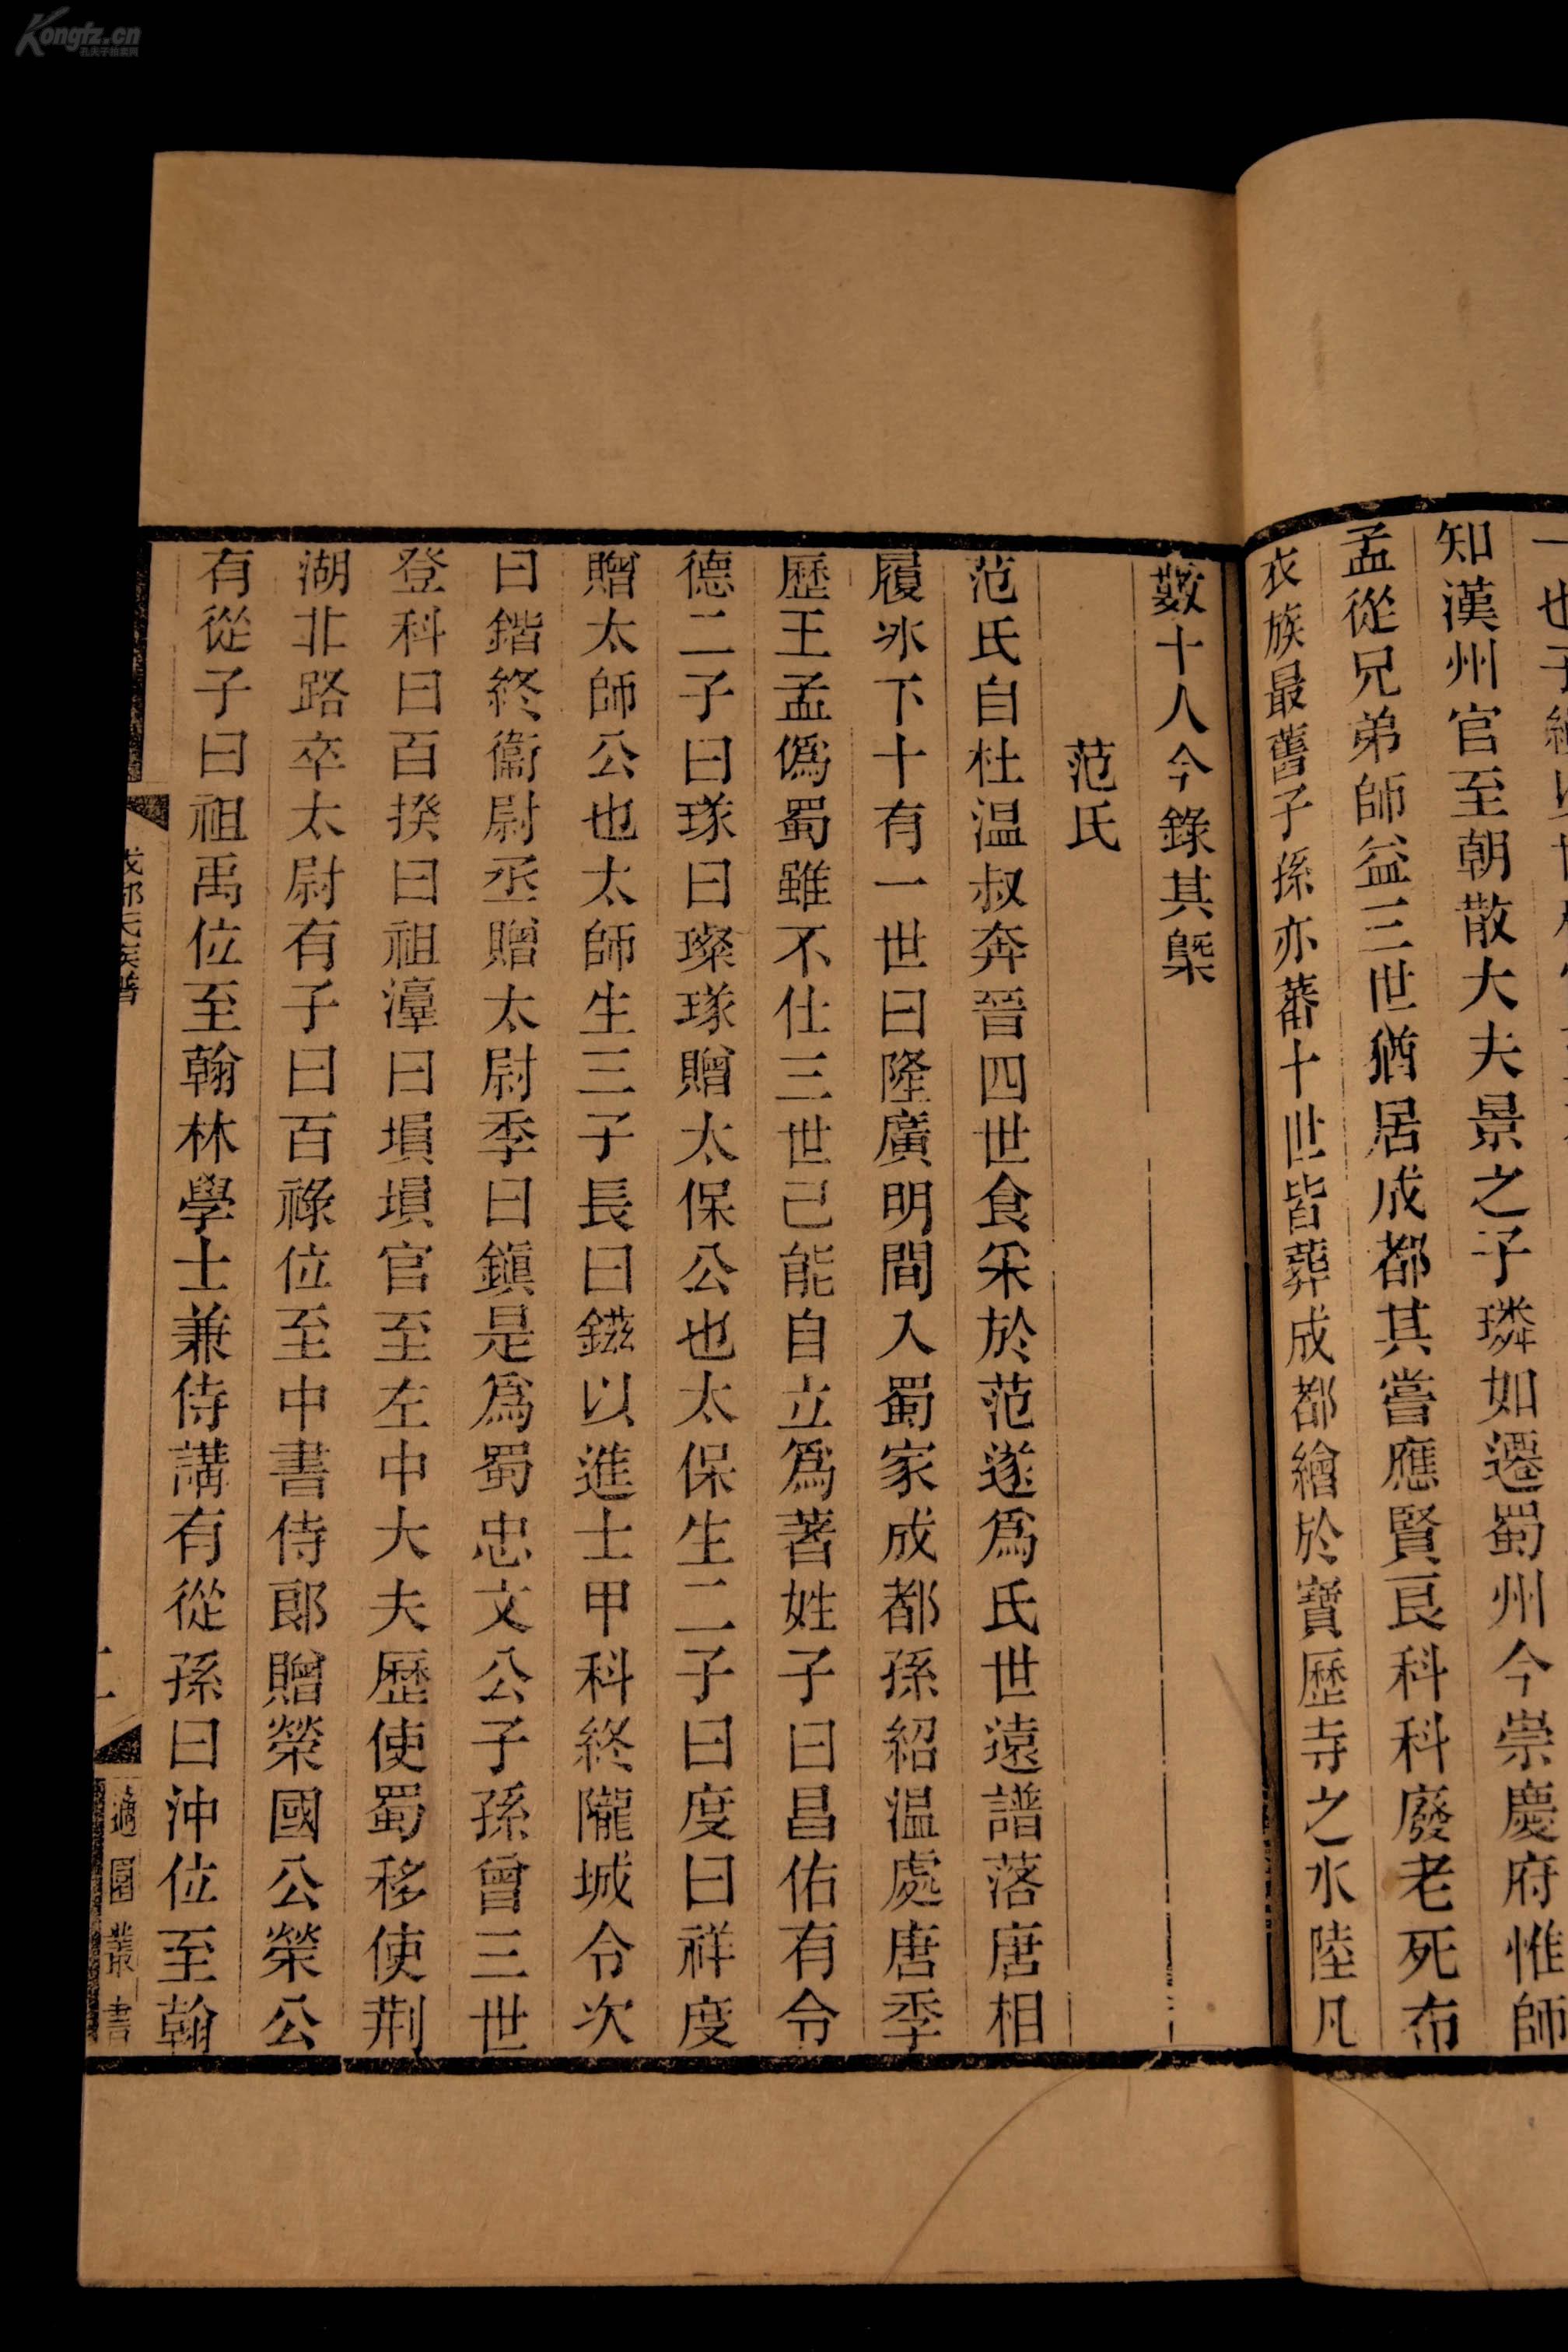 Kongfz.cn
孔夫子旧书网
知漢州官至朝散大夫景之子璘如遷蜀州今崇慶府惟師
孟從兄弟師益三世猶居成都其嘗應賢良科科廢老死布
衣族最舊子孫亦蕃十世皆葬成都繪於寶歷寺之水陸凡
數十人今錄其槩
范氏
范氏自杜温叔奔晉四世食采於范遂爲氏世遠譜落唐相
履冰下十有一世曰隆廣明間入蜀家成都孫紹温處唐季
歷王孟僞蜀雖不仕三世已能自立爲著姓子曰昌佑有令
德二子曰璲曰璨璲贈太保公也太保生二子曰度曰祥度
贈太師公也太師生三子長曰鎡以進士甲科終隴城令次
曰鍇終衞尉丞贈太尉季曰鎭是爲蜀忠文公子孫曾三世
登科曰百揆曰祖𤀹曰塤塤官至左中大夫歷使蜀移使荆
湖北路卒太尉有子曰百祿位至中書侍郎贈榮國公榮公
有從子曰祖禹位至翰林學士兼侍講有從孫曰沖位至翰
成都氏族譜
二
適園叢書